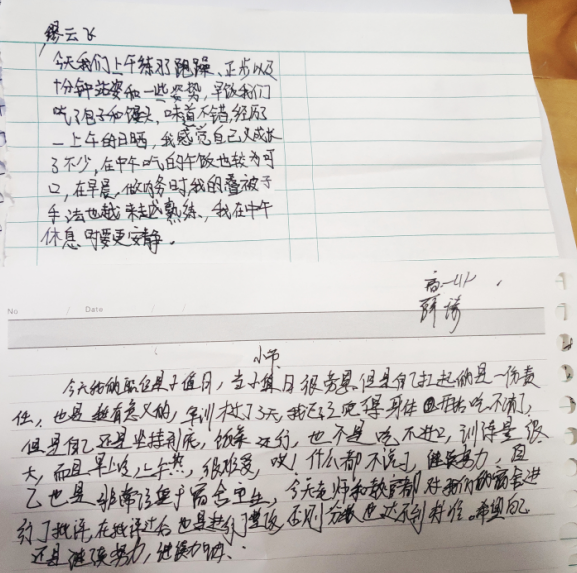 缪云飞
今天我们上午练习跑操、正步以及
十分钟站姿和一些姿势,早饭我们
吃了包子和馒头,味道不错,经历了
一上午的日晒,我感觉自己又成长
了不少,在中午吃的午饭也较为可
口,在早晨,做内务时,我的叠被子
手法也越来越熟练,我在中午
休息时要更安静。
高一
No Date
小节
今天我的职位是子值日,当子值日很劳累但是自己扛起的是一份责
任,也是挺有意义的,军训才过了3天,我已经觉得身体开始吃不消了,
但是自己还是坚持到底,饭菜还行,也不是吃不进口,训练量很
大,而且早上冷,上午热,很难受,哎!什么都不说了,继续努力,自
己也是非常注重于宿舍卫生,今天老师和教官都对我们的宿舍进
行了批评,在批评过后也是进行了整改,否则分数也达不到标准。希望自己
还是继续努力,继续加油。